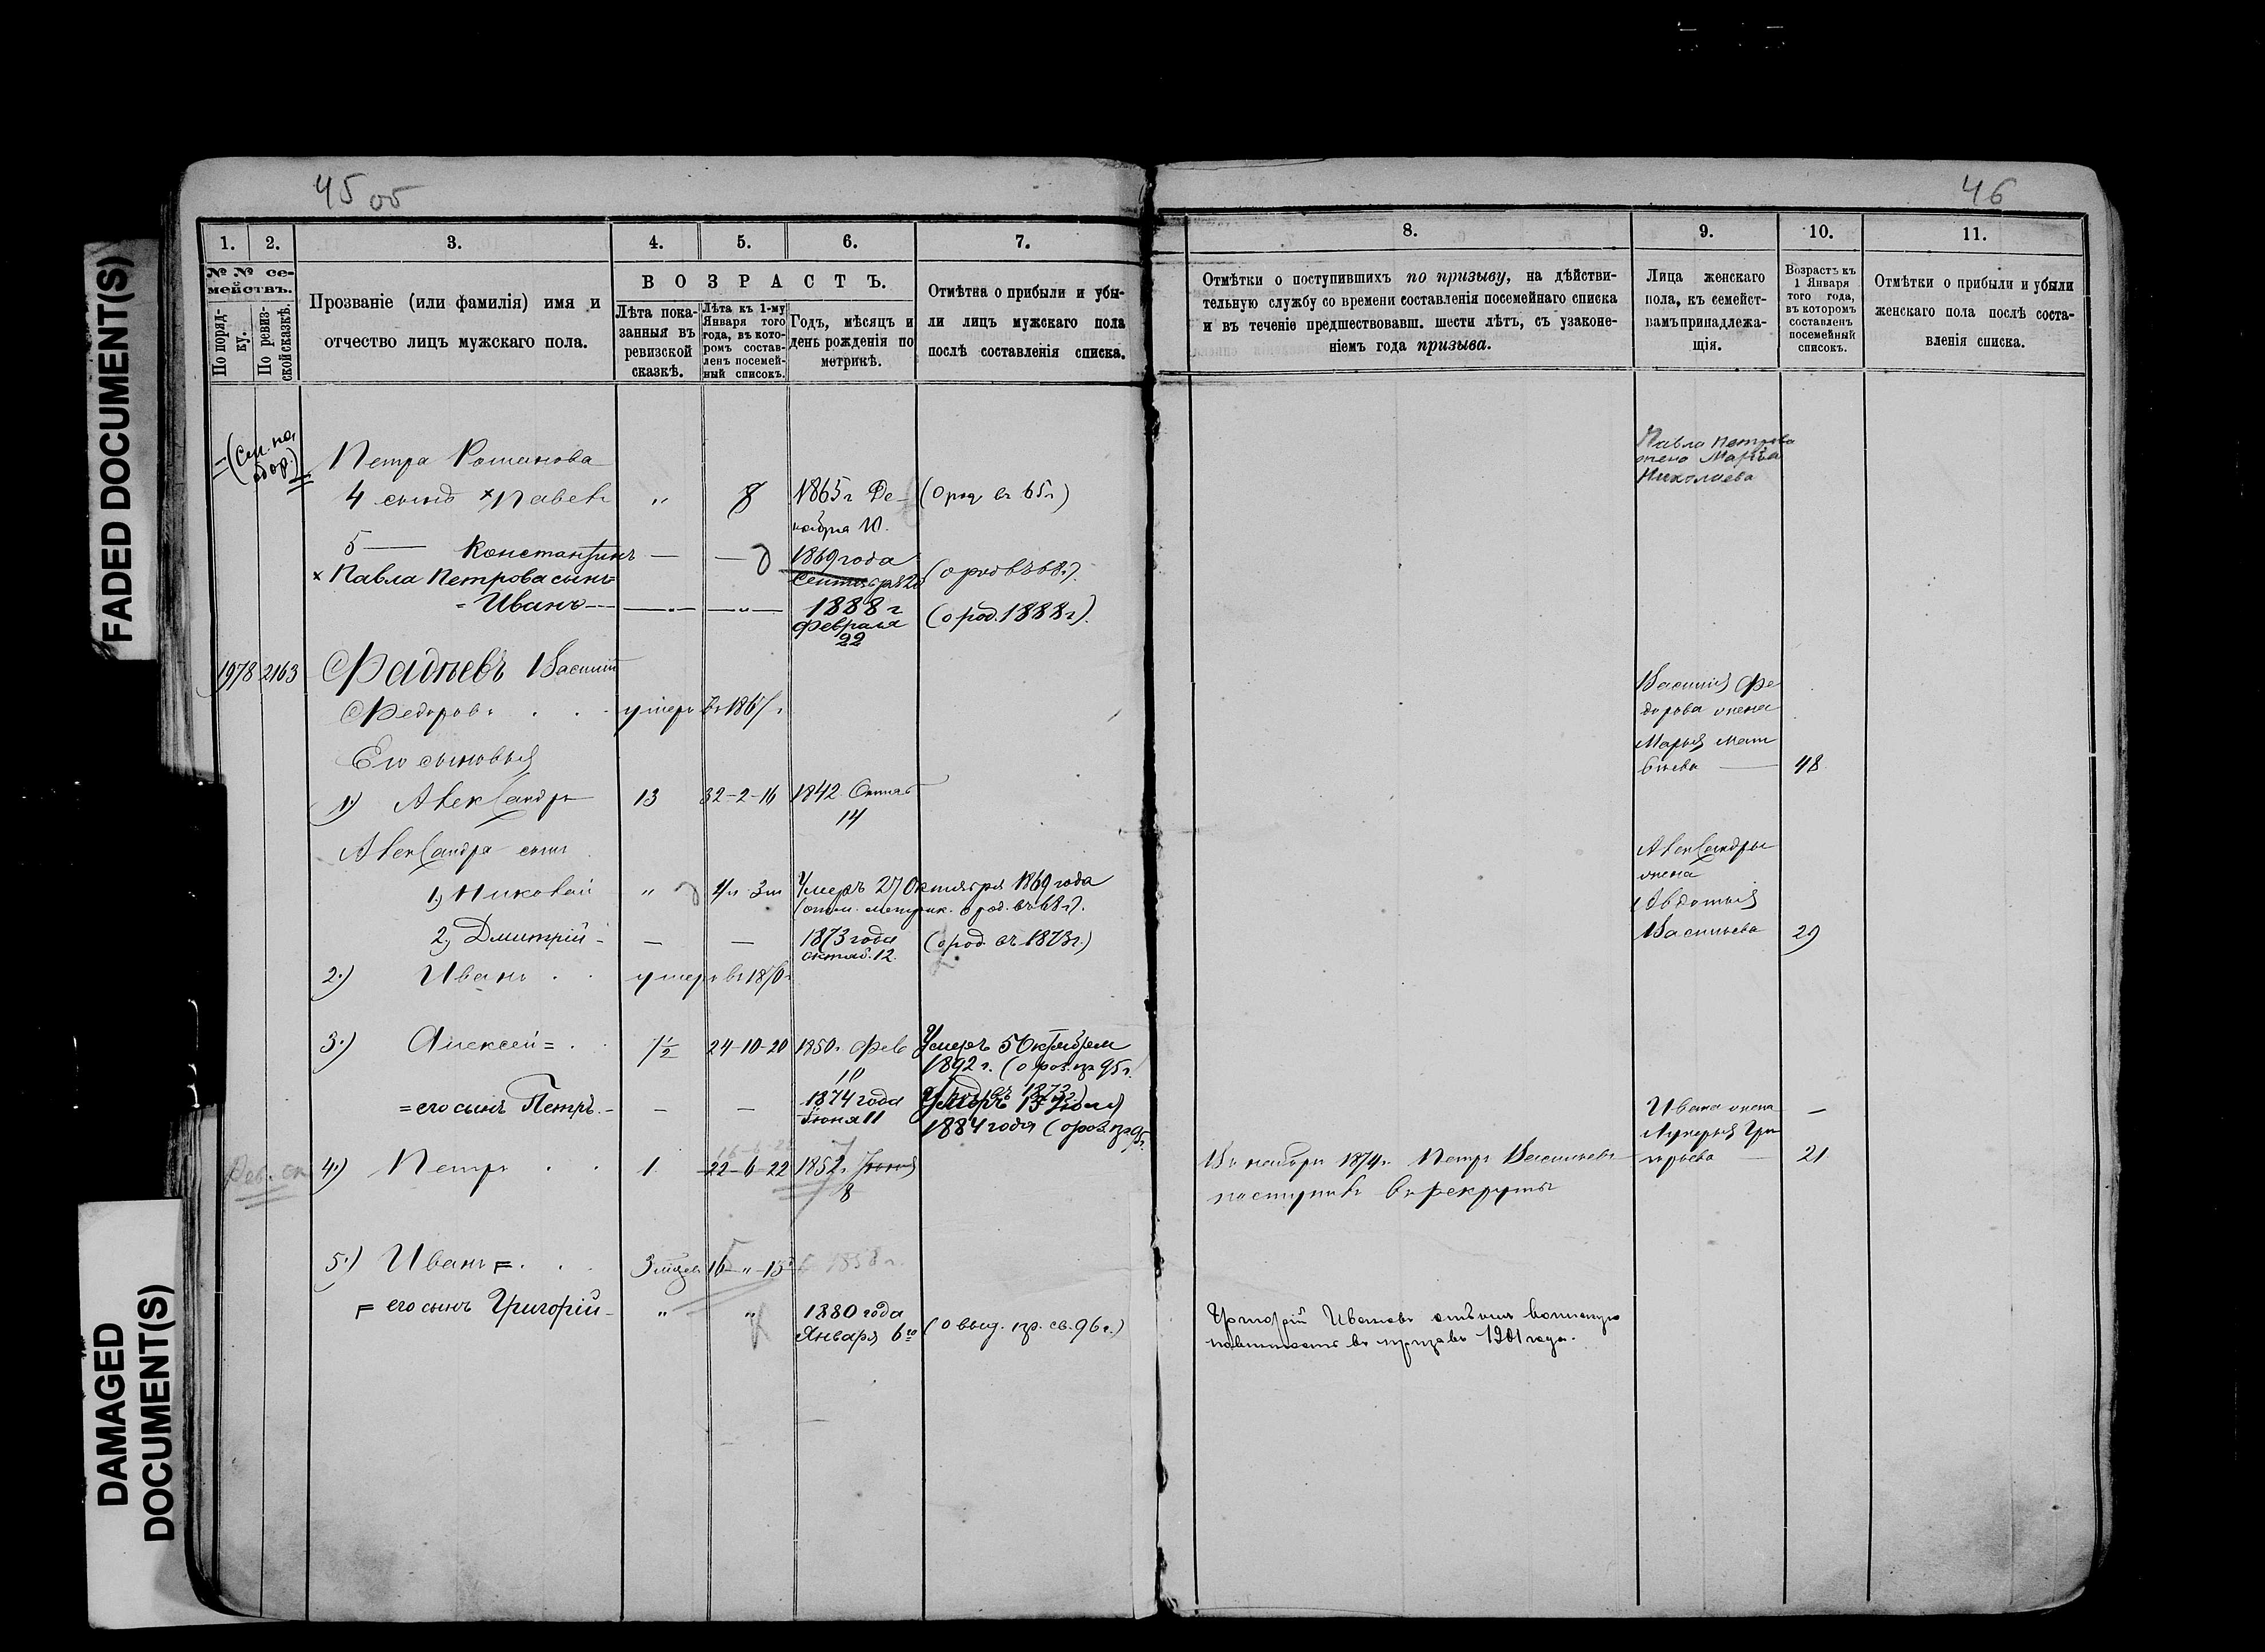 FADED DOCUMENT(S)
DAMAGED
DOCUMENT(S)
45 об
1. 2. 3. 4. 5. 6. 7.
№ № се-
мействъ.
По поряд-
ку.
По ревиз-
ской сказкѣ.
Прозваніе (или фамилія) имя и
отчество лицъ мужскаго пола.
ВОЗРАСТЪ.
Лѣта пока-
занныя въ
ревизской
сказкѣ.
Лѣта къ 1-му
Января того
года, въ кото-
ромъ состав-
ленъ посемей-
ный списокъ.
Годъ, мѣсяцъ и
день рожденія по
метрикѣ.
Отмѣтка о прибыли и убы-
ли лицъ мужскаго пола
послѣ составленія списка.
(См. на
обор.)
Петра Романова
4 сынъ ×Павелъ " 8 1865 г. Де- (о род. въ 65 г)
кабря 10.
5 — Константинъ — — 1869 года (о род. въ 68 г.)
Сентября
× Павла Петрова сынъ
= Иванъ — — " — — " — 1888 г. (о род. 1888 г.)
Февраля
22
1978 2163 Фадѣевъ Василій
Федоровъ . . умеръ въ
Его сыновья
1.) Александръ 13 32-2-16 1842 Октяб
14
Александра сынъ
1.) Николай " Умеръ 27 Октября 1869 года
(отм. метрик. о род. въ 68 г.)
2.) Дмитрій — — 1873 года (о род. въ 1873 г.)
октяб. 12.
2.) Иванъ . . умеръ въ 1870 г.
3.) Алексѣй = . 7½ 24-10-20 1850 г. Фев Умеръ 5 Октября
10 1892 г.
= его сынъ Петръ — — — 1874 года Умеръ 13 Іюля
Іюня 11 1884 года
4.) Петръ . . 1 22-6-22 1852 г. Іюня
8
5.) Иванъ = . . 3 мѣсяц 16-"-13 1858 г.
= его сынъ Григорій — " " 1880 года
Января 6го (о выд. пр. св. 96 г.)
46
8. 9. 10. 11.
Отмѣтки о поступившихъ по призыву, на дѣйстви-
тельную службу со времени составленія посемейнаго списка
и въ теченіе предшествовавш. шести лѣтъ, съ узаконе-
ніемъ года призыва.
Лица женскаго
пола, къ семейст-
вамъ принадлежа-
щія.
Возрастъ къ
1 Января
того года,
въ которомъ
составленъ
посемейный
списокъ.
Отмѣтки о прибыли и убыли
женскаго пола послѣ соста-
вленія списка.
Павла Петрова
жена Марья
Николаева
Василія Фе
дорова жена
Марья Мат
вѣева — 48
Александра
жена
Авдотья
Васильева 29
Ивана жена —
Лукерья Гри
горьева — 21
Въ наборъ 1874 г. Петръ Васильевъ
поступилъ въ рекруты
Григорій Ивановъ отбылъ воинскую
повинность въ призывъ 1901 года.